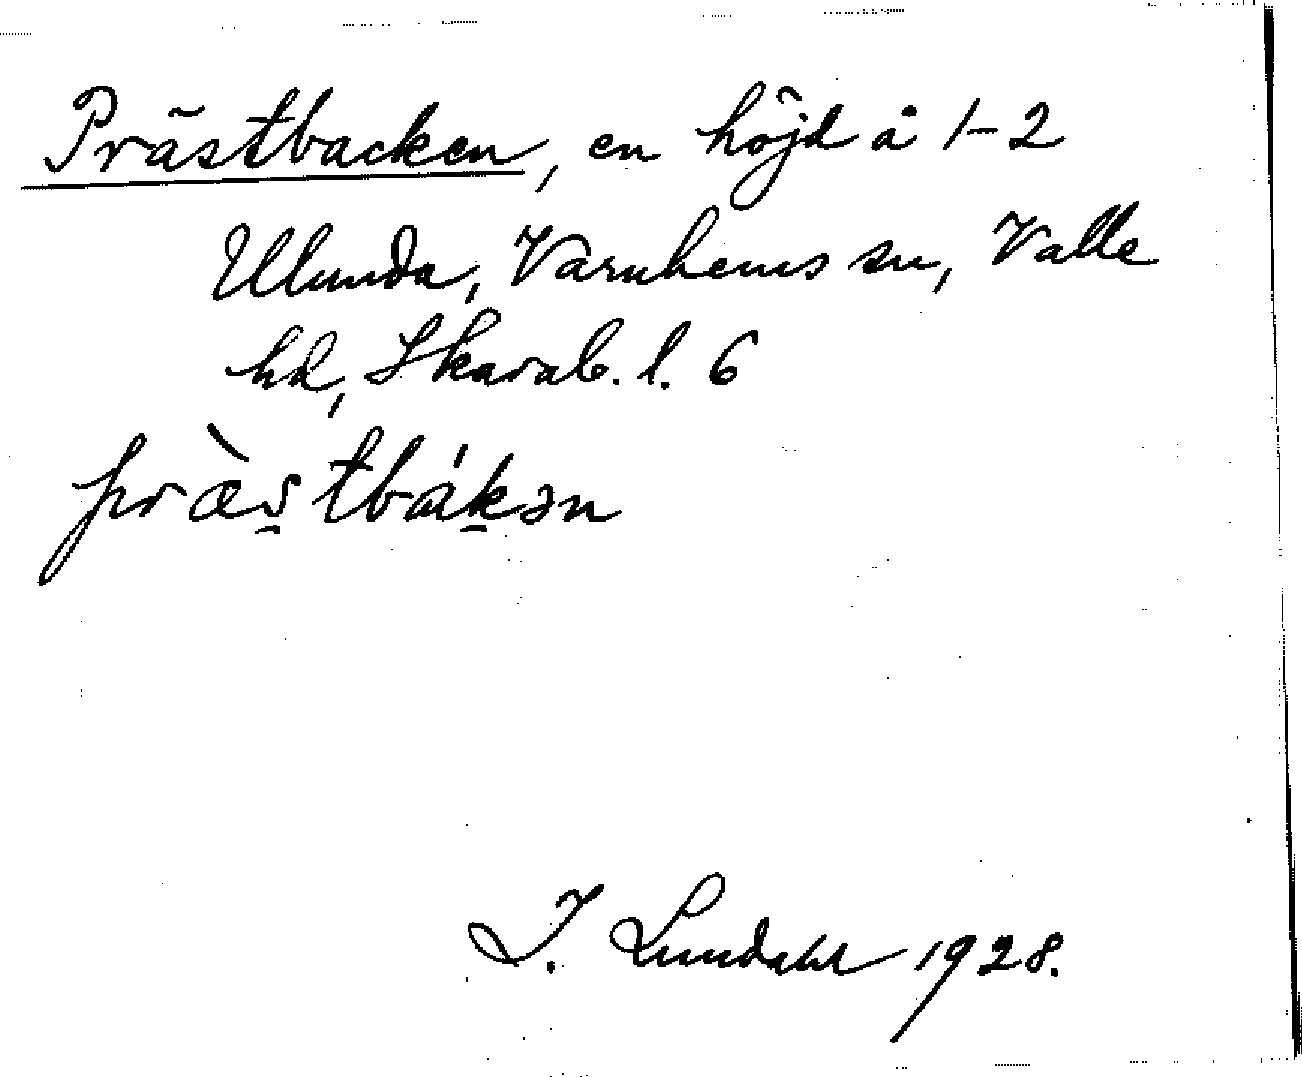 Prästbacken, en höjd å 1-2
Ulunda, Varnhems sn, Valle
hd, Skarab. l. 6
præ̀s̠tbák̠ən
I. Lundahl 1928.